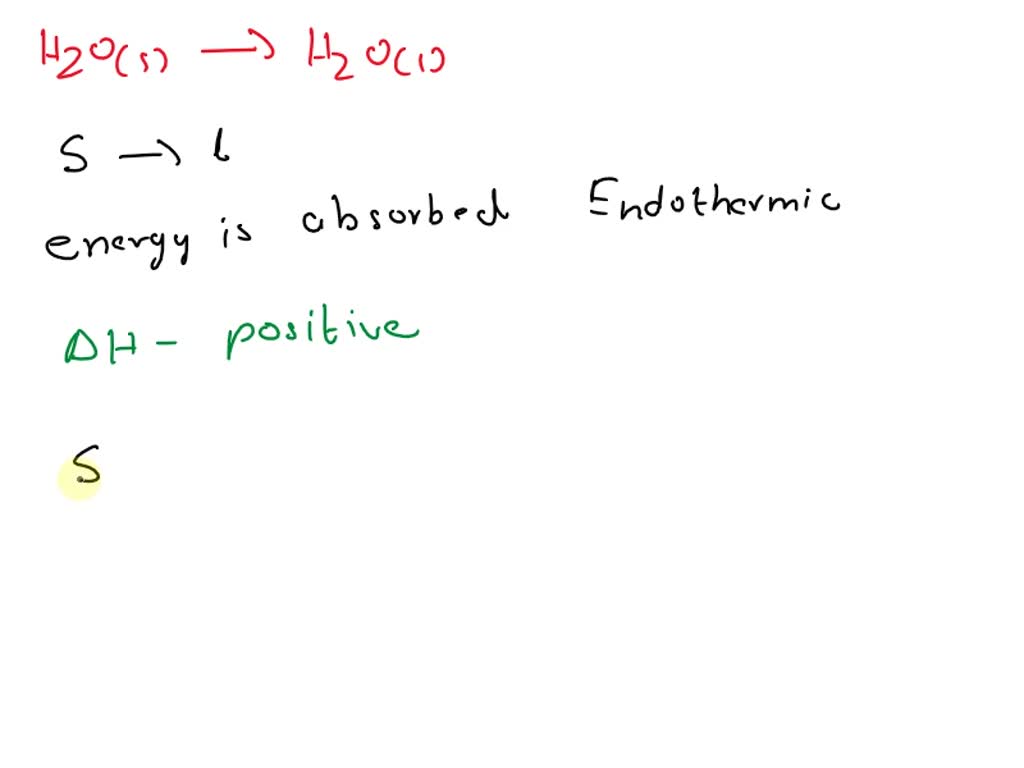 H₂O(s) → H₂O(l)
S → l
energy is absorbed Endothermic
ΔH - positive
S